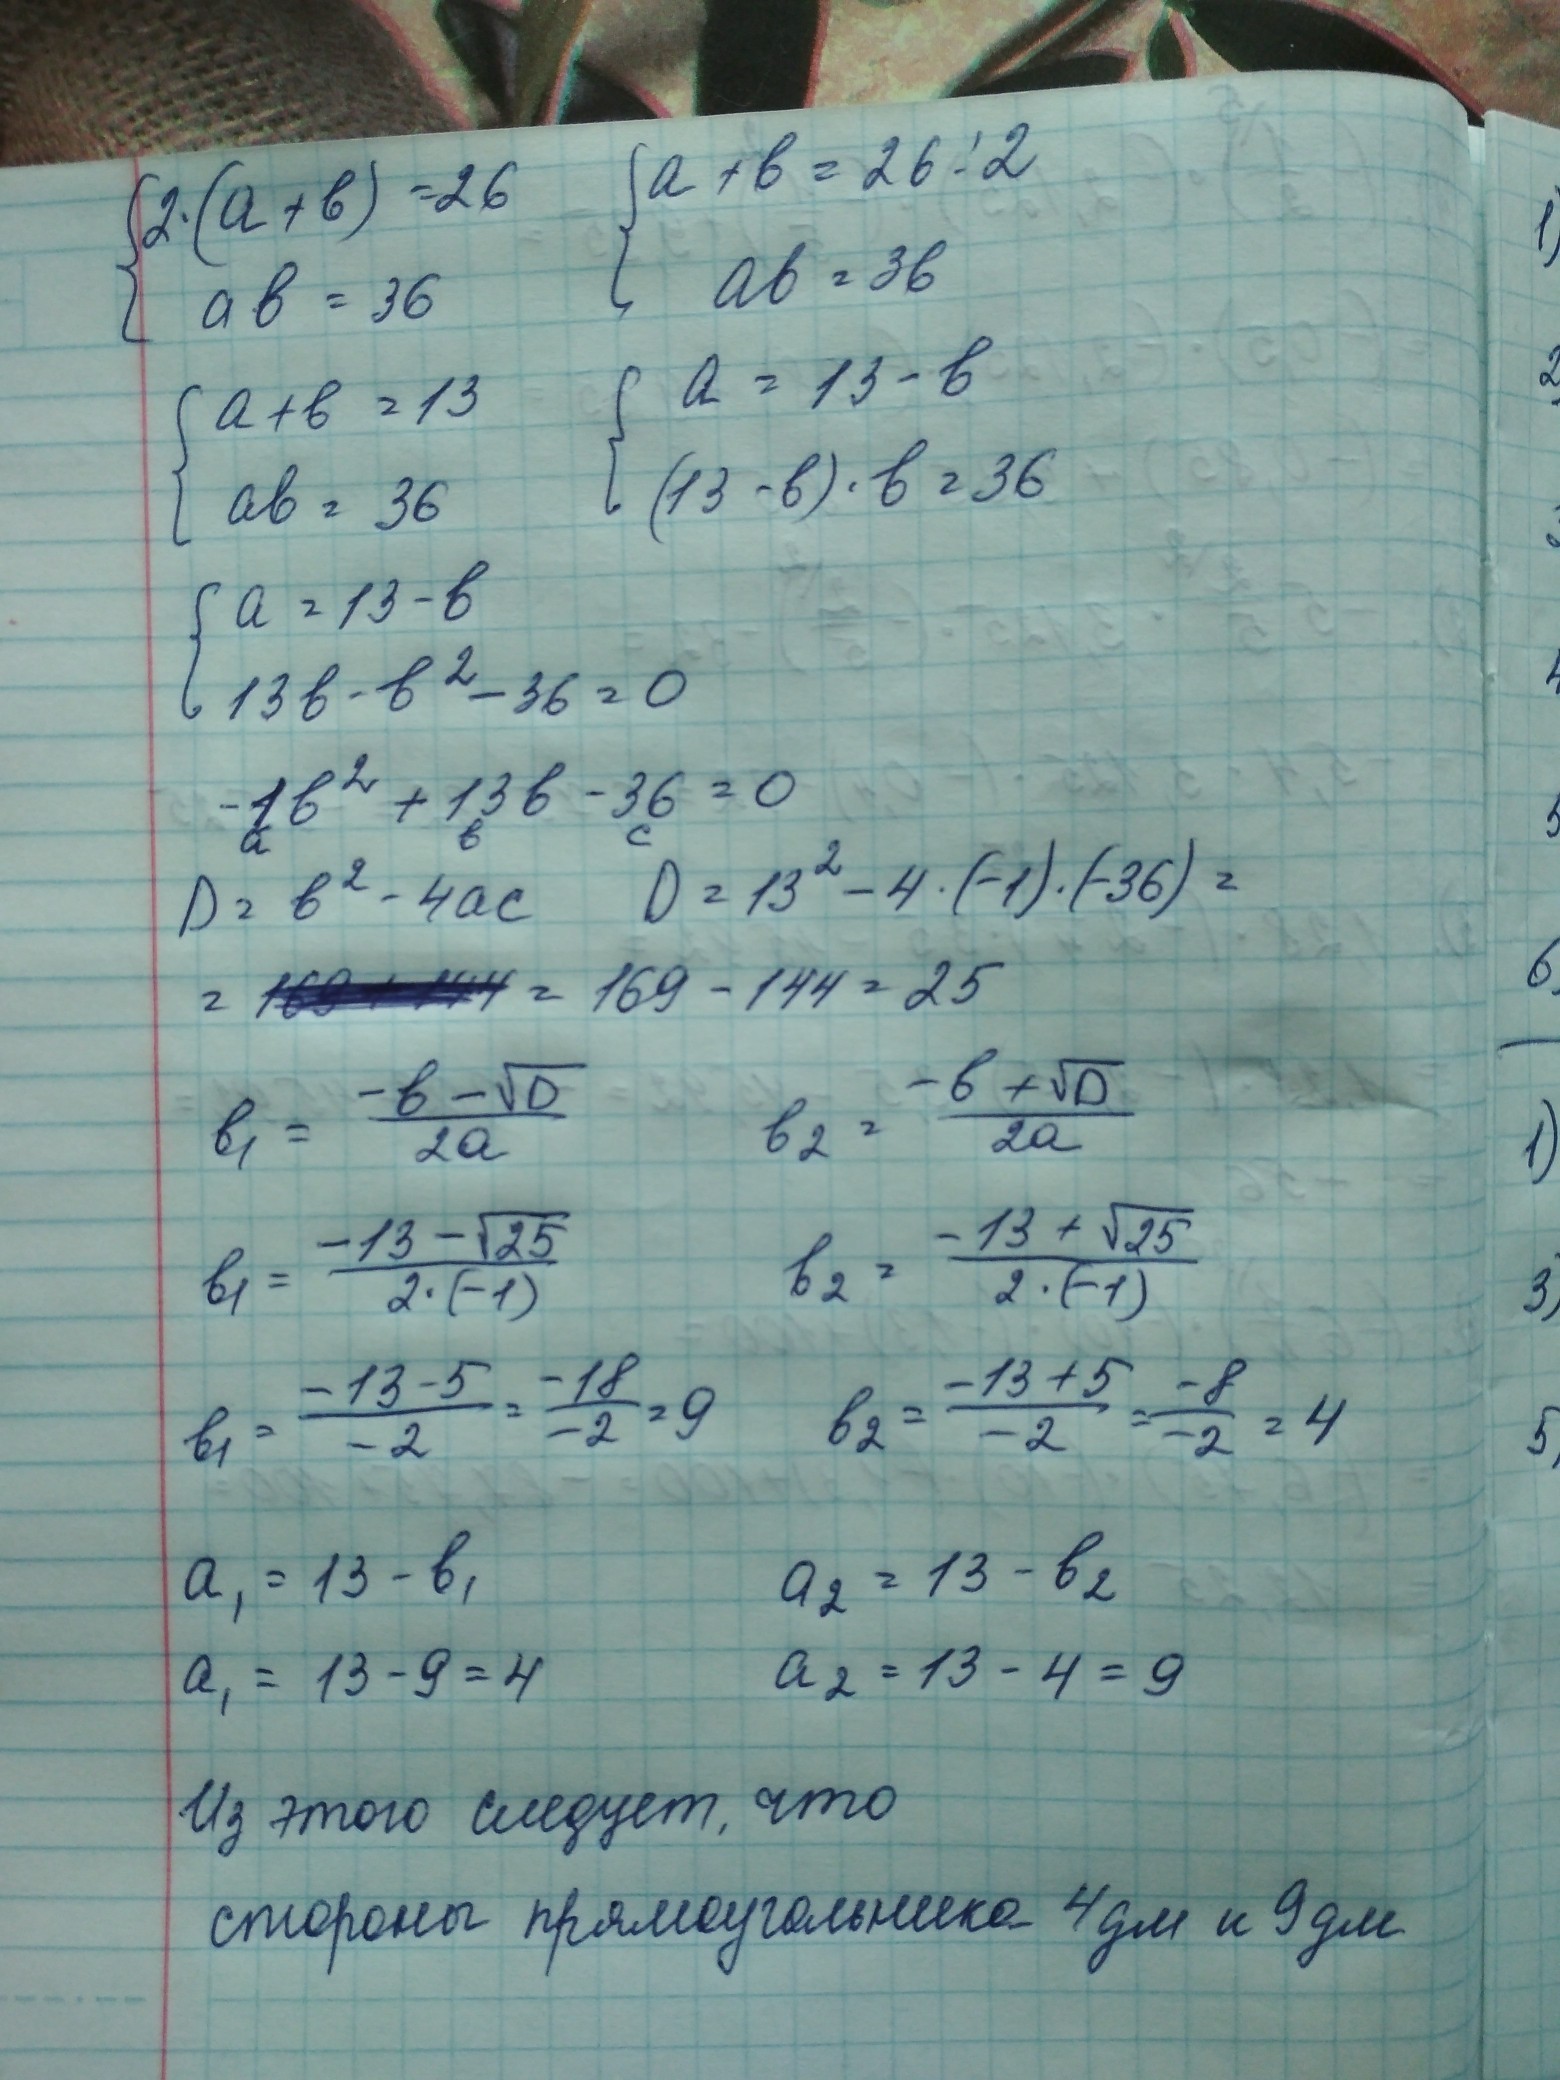 {2·(a+b)=26 {a+b=26:2
{ab=36 {ab=36
{a+b=13 {a=13-b
{ab=36 {(13-b)·b=36
{a=13-b
{13b-b²-36=0
-1b²+13b-36=0
a b c
D=b²-4ac D=13²-4·(-1)·(-36)=
= = 169-144=25
b₁=(-b-√D)/2a b₂=(-b+√D)/2a
b₁=(-13-√25)/(2·(-1)) b₂=(-13+√25)/(2·(-1))
b₁=(-13-5)/-2=-18/-2=9 b₂=(-13+5)/-2=-8/-2=4
a₁=13-b₁ a₂=13-b₂
a₁=13-9=4 a₂=13-4=9
Из этого следует, что
стороны прямоугольника 4дм и 9дм
1)
2
4
5
6
1)
3)
5